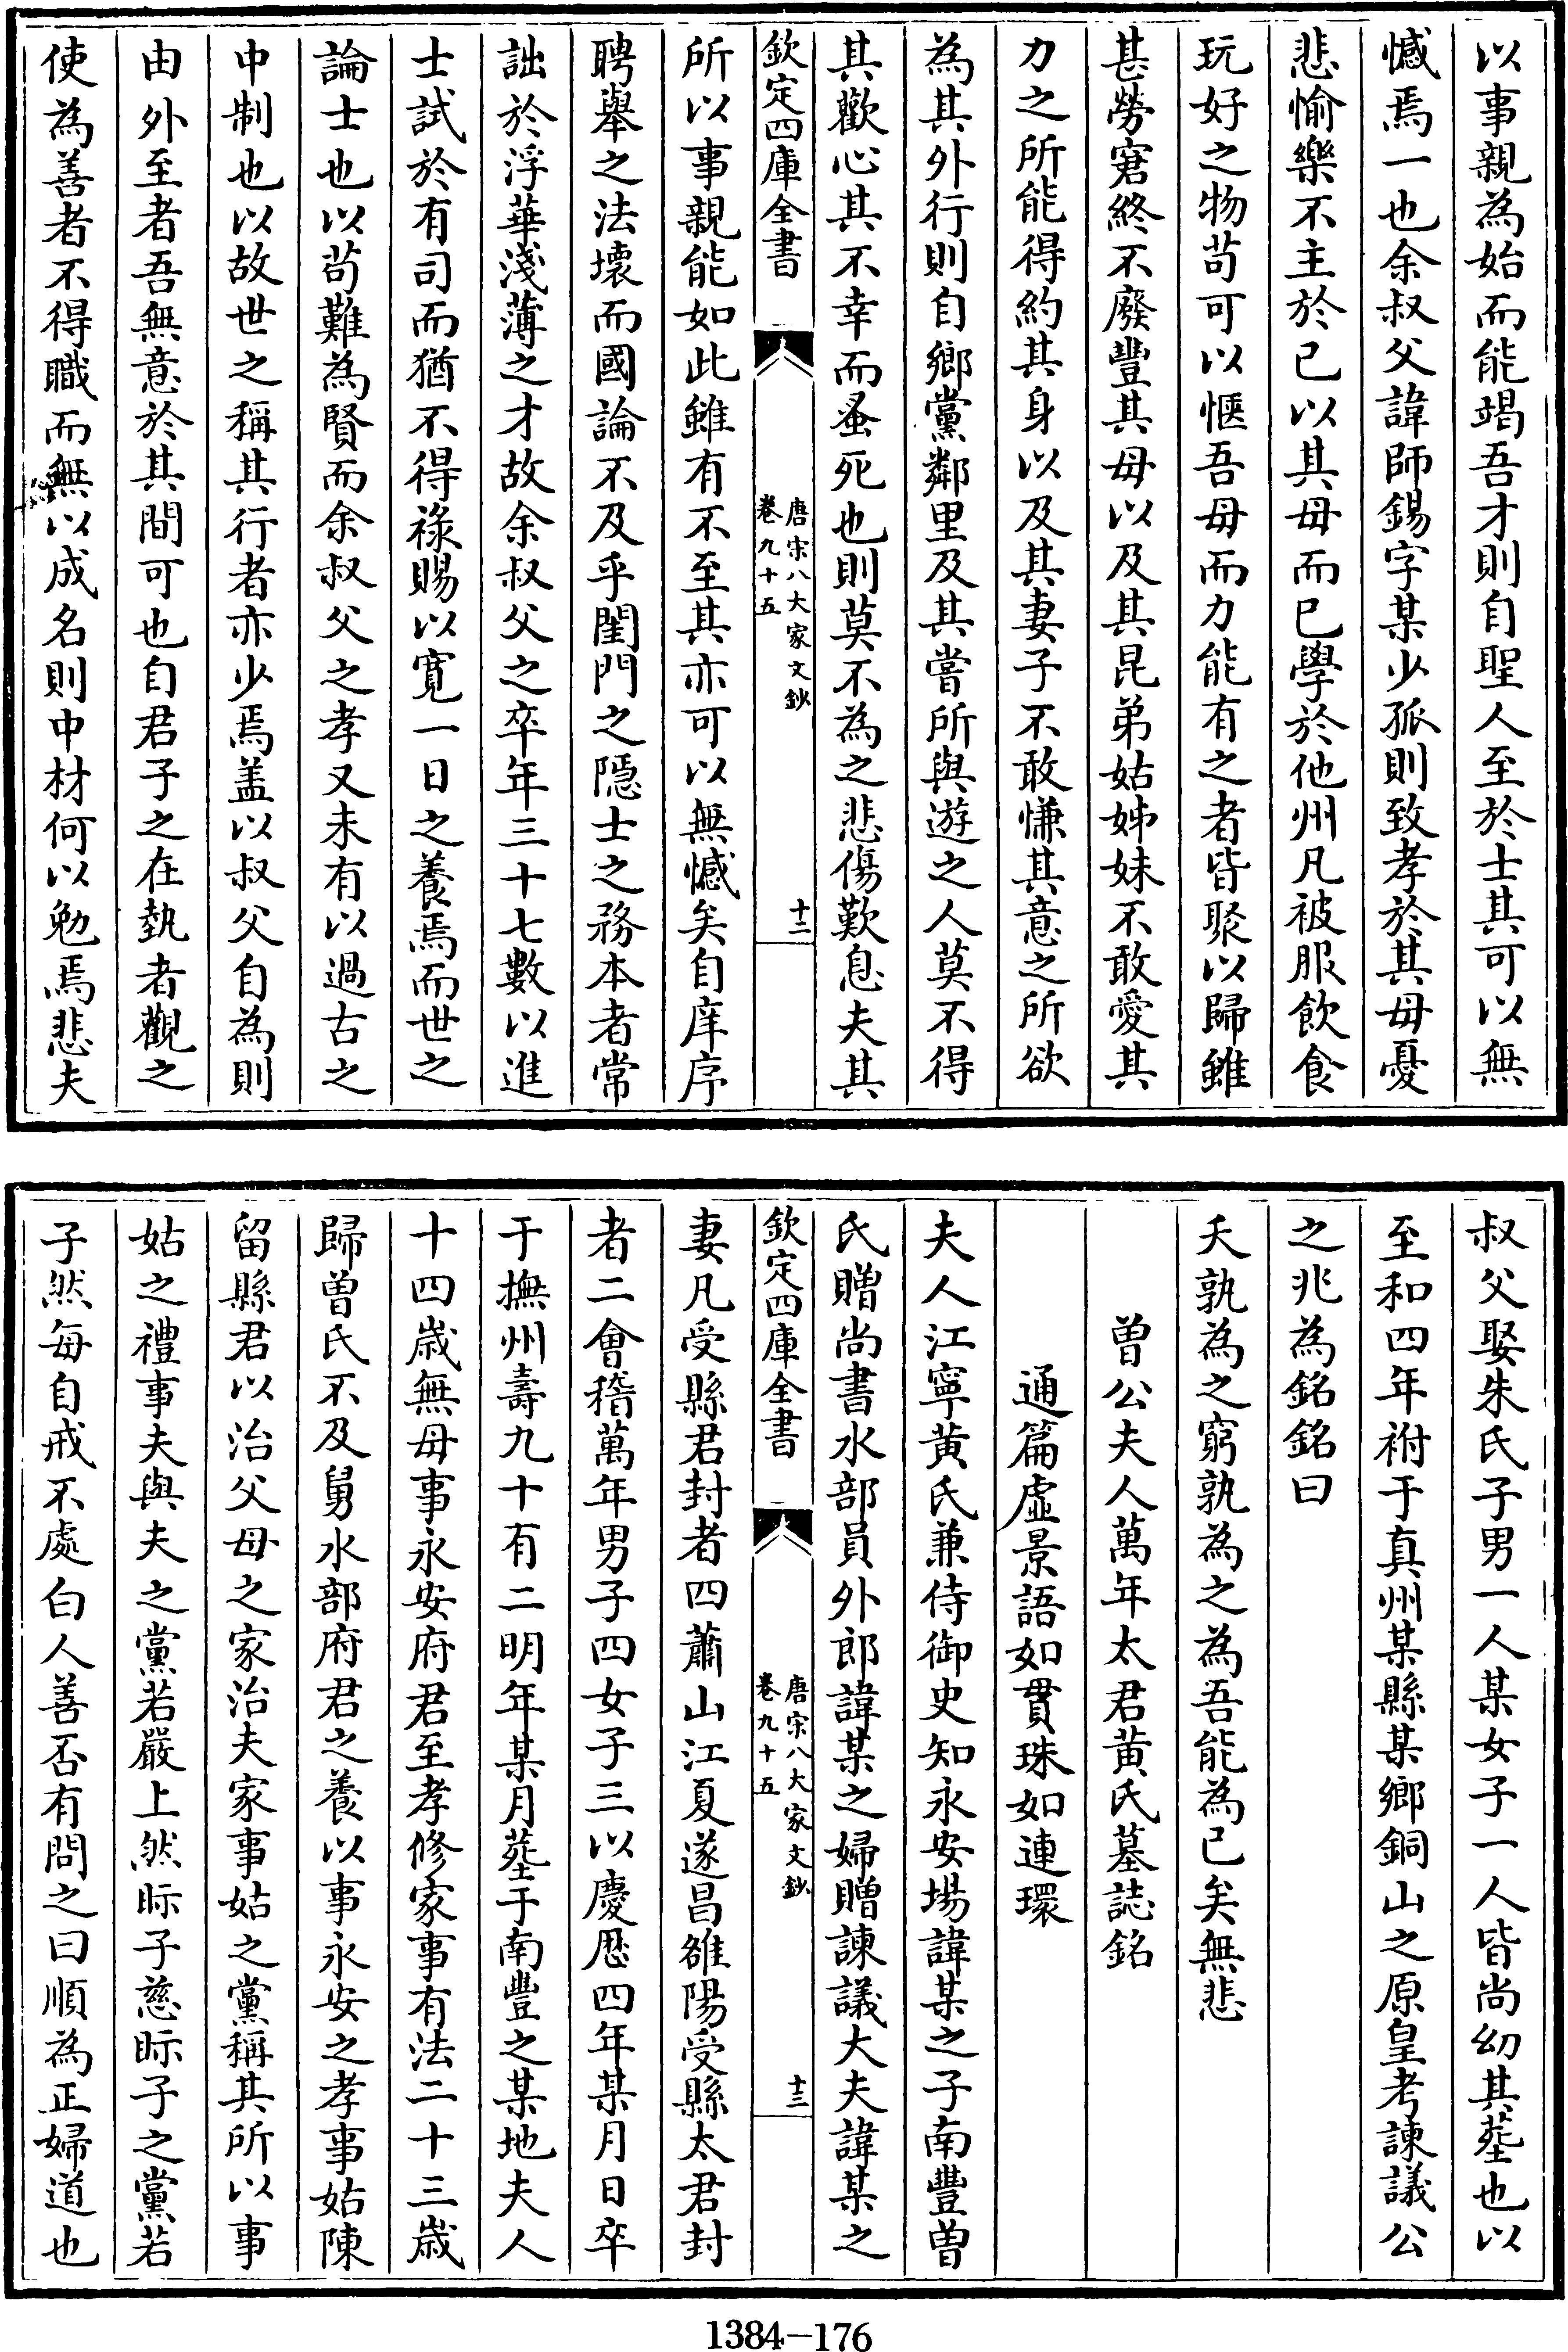 以事親為始而能竭吾才則自聖人至於士其可以無
憾焉一也余叔父諱師錫字某少孤則致孝於其母憂
悲愉樂不主於已以其母而已學於他州凡被服飲食
玩好之物苟可以愜吾母而力能有之者皆聚以歸雖
甚勞窘終不廢豐其母以及其昆弟姑姊妹不敢愛其
力之所能得約其身以及其妻子不敢慊其意之所欲
為其外行則自鄉黨鄰里及其嘗所與遊之人莫不得
其歡心其不幸而蚤死也則莫不為之悲傷歎息夫其
欽定四庫全書
唐宋八大家文鈔
卷九十五
十二
所以事親能如此雖有不至其亦可以無憾矣自庠序
聘舉之法壞而國論不及乎閨門之隱士之務本者常
詘於浮華淺薄之才故余叔父之卒年三十七數以進
士試於有司而猶不得祿賜以寛一日之養焉而世之
論士也以苟難為賢而余叔父之孝又未有以過古之
中制也以故世之稱其行者亦少焉盖以叔父自為則
由外至者吾無意於其間可也自君子之在埶者觀之
使為善者不得職而無以成名則中材何以勉焉悲夫
叔父娶朱氏子男一人某女子一人皆尚幼其塟也以
至和四年祔于真州某縣某鄉銅山之原皇考諫議公
之兆為銘銘曰
夭孰為之窮孰為之為吾能為已矣無悲
曽公夫人萬年太君黄氏墓誌銘
通篇虚景語如貫珠如連環
夫人江寧黄氏兼侍御史知永安場諱某之子南豐曽
氏贈尚書水部員外郎諱某之婦贈諫議大夫諱某之
欽定四庫全書
唐宋八大家文鈔
卷九十五
十三
妻凡受縣君封者四蕭山江夏遂昌雒陽受縣太君封
者二會稽萬年男子四女子三以慶厯四年某月日卒
于撫州壽九十有二明年某月塟于南豐之某地夫人
十四歲無母事永安府君至孝修家事有法二十三歲
歸曽氏不及舅水部府君之養以事永安之孝事姑陳
留縣君以治父母之家治夫家事姑之黨稱其所以事
姑之禮事夫與夫之黨若嚴上然眎子慈眎子之黨若
子然每自戒不處白人善否有問之曰順為正婦道也
1384—176